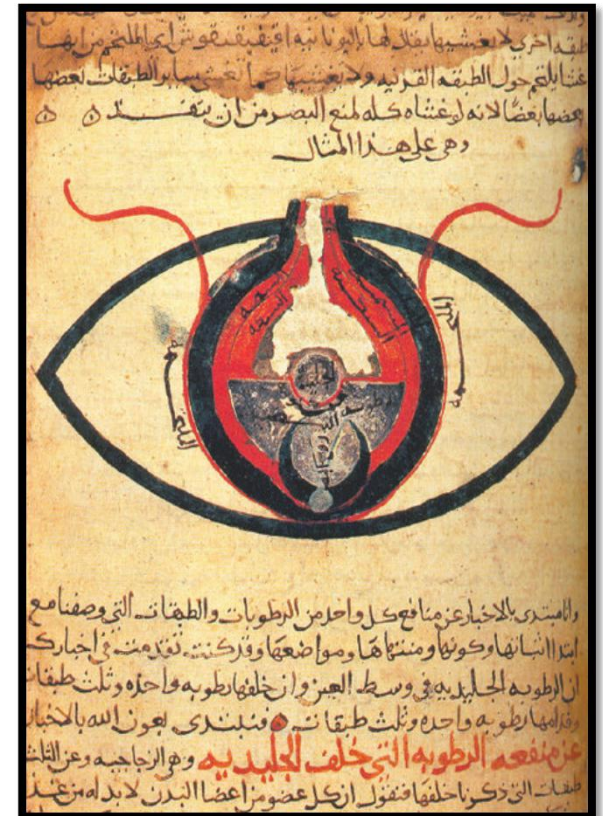 طبقه اخرى لا يغشيها يقال لها باليونانيه اي الملتحم من انها
غشا يلتحم حول الطبقه القرنيه ولا يغشيها كما تغشى ساير الطبقات بعضها
بعضها بعضا لانه لو غشاه كله لمنع البصر من ان ينفذ
وهي على هذا المثال
الملتحمه
الجليديه
وانا مبتدى بالاخبار عن منافع كل واحد من الرطوبات والطبقات التي وصفنا مع
ابتدا اثباتها وكونها ومنتهاها ومواضعها وقد كنت تقدمت في اخبارك
ان الرطوبه الجليديه في وسط العين وان خلفها رطوبه واحده وثلث طبقات
وقدامها رطوبه واحده وثلث طبقات ونبتدى بعون الله بالاخبار
عن منفعه الرطوبه التي خلف الجليديه وهي الزجاجيه وعن الثلث
طبقات التي ذكرنا خلفها فنقول ان كل عضو من اعضا البدن لا بد له من غذا